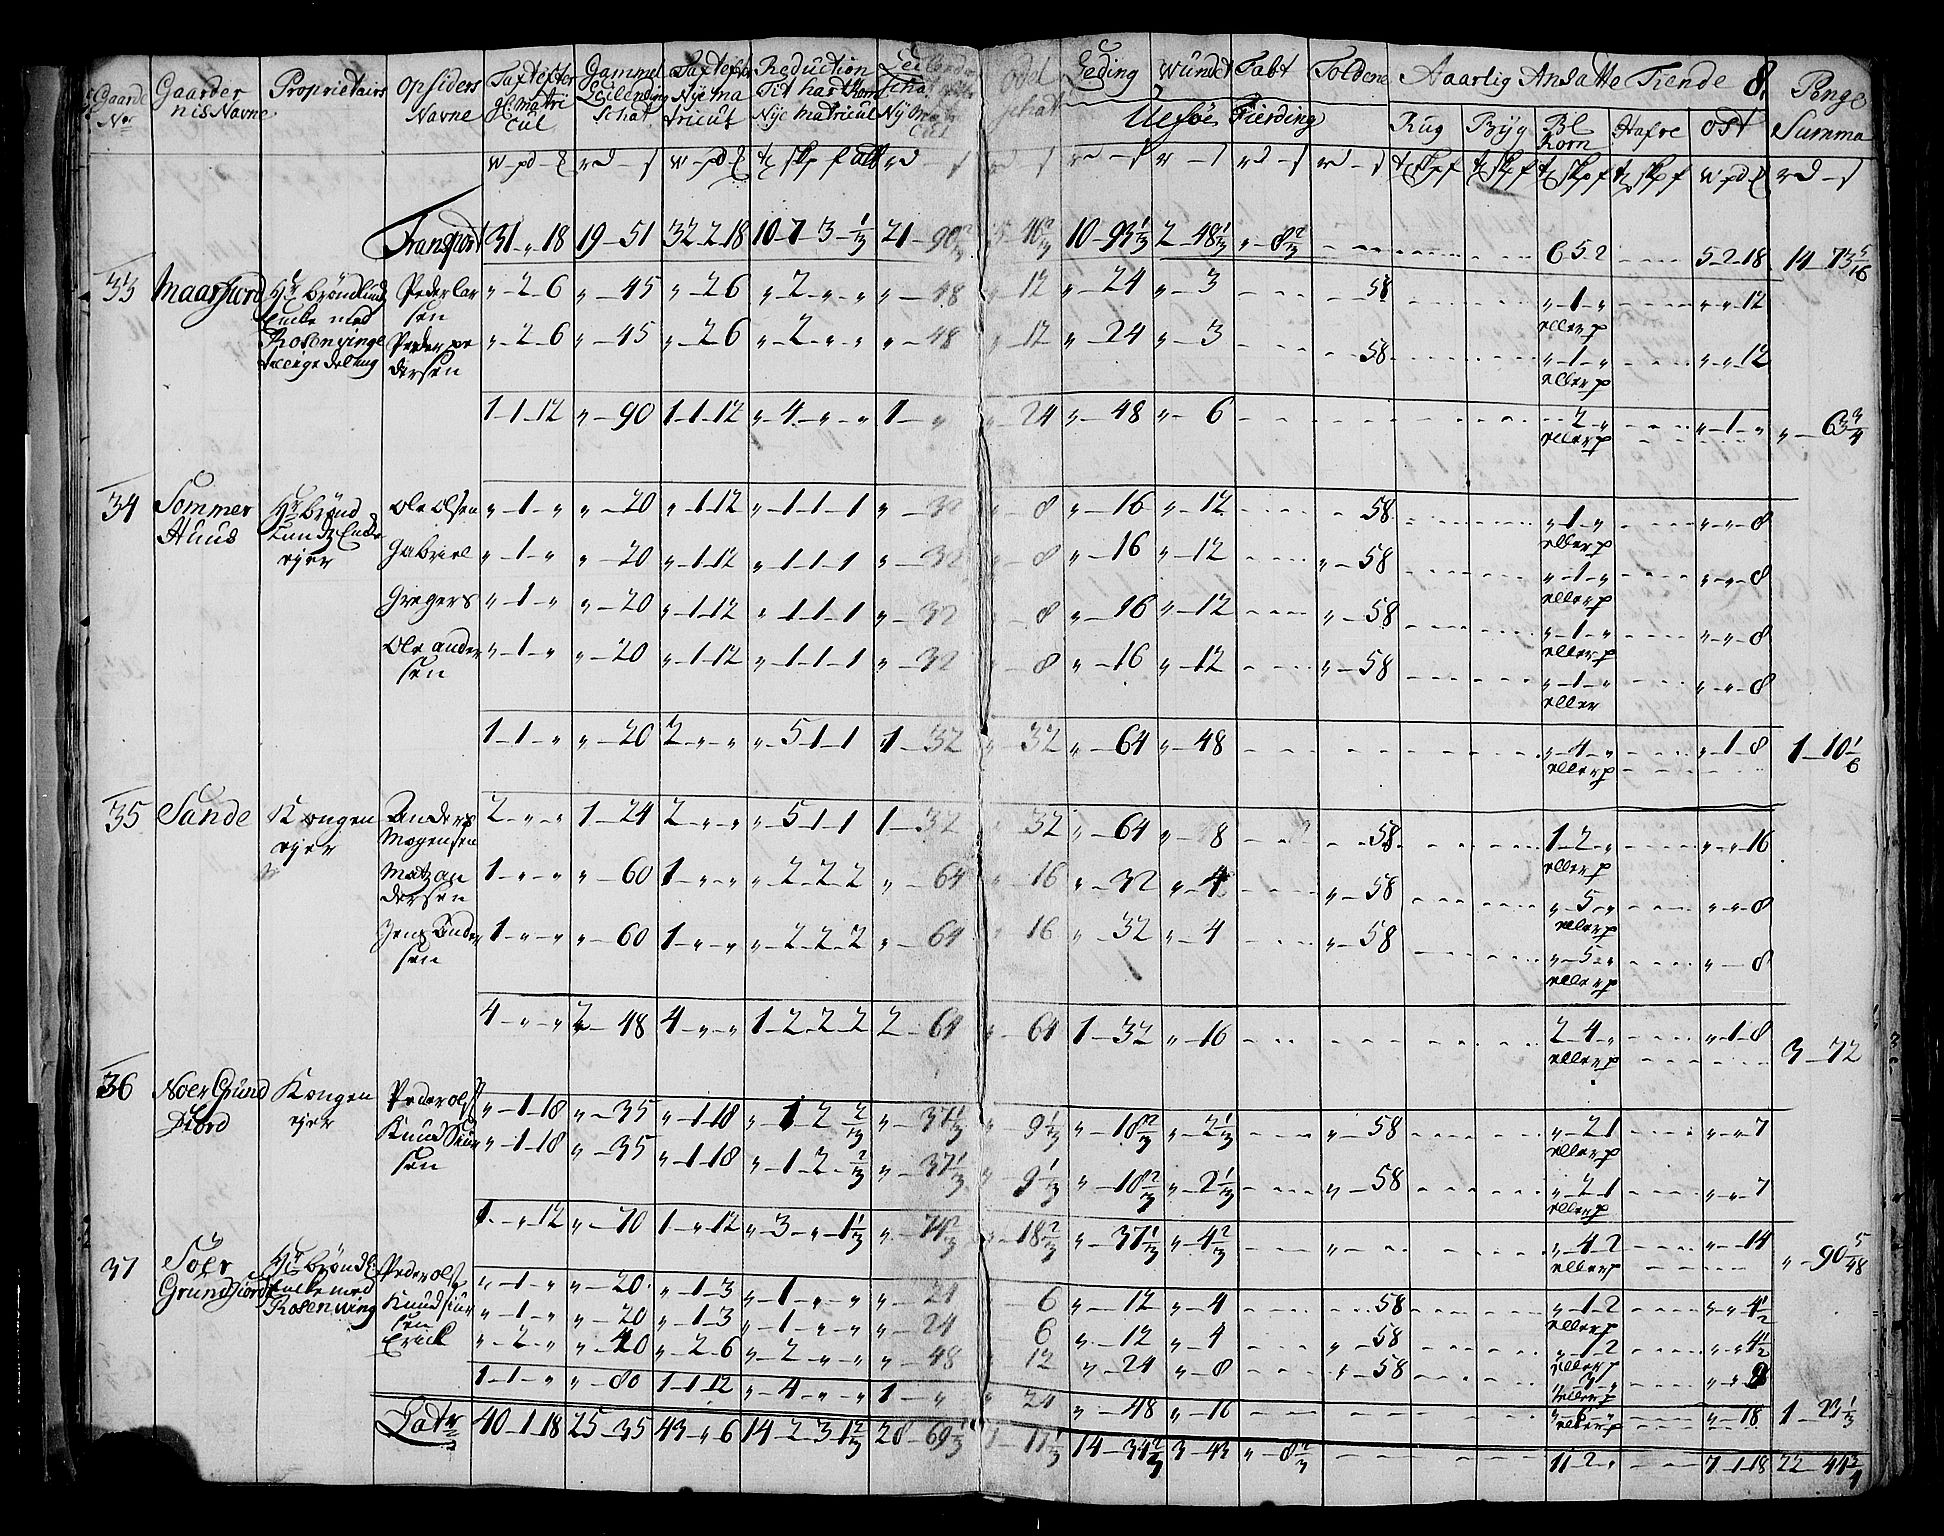 Gaarde Gaarder Proprietairs Opsiders Taxt efter Gammel Taxt efter Reduction odel Leding Wundet Tabt Toldene Aarlig Ansatte Tiende 8. Penge
No. nis Navne Navne gl: Matricul Leilending Schat Nye Matricul Til hart Korn Nye Matricul schat Ulfsöe Fierding Rug Byg Bl Korn Hafre Ost Summa
Transport 31 - „ 18 19 - 51 32 - 2 - 18 10 - 7 - 3 - 1/3 21 - 90 2/3 10 - 93 1/3 2 - 48 1/3 „ - 8 2/3 6 5 2 5 - 2 - 18 14 - 73 5/16
33 Maarfiord Hr. Brönlund Peder Lar „ - 2 - 6 „ - 45 „ - 2 6 „ - 2 - „ - „ „ - 48 „ 12 „ - 24 „ - 3 58 „ - 1 - „ „ - „ - 12
Enke med sen eller p
Rosenvinge Peder pe „ - 2 - 6 „ - 45 „ - 2 6 „ - 2 - „ - „ „ - 48 „ 12 „ - 24 „ - 3 58 „ - 1 - „ „ - „ - 12
dersen eller p
1 - 1 - 12 „ - 90 1 - 1 - 12 „ - 4 - „ - „ 1 - „ „ 24 „ - 48 „ - 6 „ - 2 - „ „ - 1 - „ „ - 63 3/4
eller p
34 Sommer Hr. Brönd Ole Olsen „ - 1 - „ „ - 20 „ - 1 12 „ - 1 - 1 - 1 „ - 32 „ 8 „ - 16 „ - 12 58 „ - 1 - „ „ - „ - 8
Huus lunds Enke eller p
ejer Gabriel „ - 1 - „ „ - 20 „ - 1 12 „ - 1 - 1 - 1 „ - 32 „ 8 „ - 16 „ - 12 „ - 58 „ - 1 - „ „ - „ - 8
eller p
Gregers „ - 1 - „ „ - 20 „ - 1 12 „ - 1 - 1 - 1 „ - 32 „ 8 „ - 16 „ - 12 „ - 58 „ - 1 - „ „ - „ - 8
eller p
Ole ander „ - 1 - „ „ - 20 „ - 1 12 „ - 1 - 1 - 1 „ - 32 „ 8 „ - 16 „ - 12 „ - 58 „ - 1 - „ „ - „ - 8
sen eller
1 - 1 - „ „ - 20 2 - „ - „ „ - 5 - 1 - 1 1 - 32 „ 32 „ - 64 „ - 48 „ - 4 - „ „ - 1 - 8 1 - 10 1/6
eller p
35 Sande Kongen Anders 2 - „ - „ 1 - 24 2 - „ - „ „ - 5 - 1 - 1 1 - 32 „ 32 „ - 64 „ - 8 58 1 - 2 - „ „ - „ - 16
ejer Mogensen eller p
Matz an 1 - „ - „ „ - 60 1 - „ - „ „ - 2 - 2 - 2 „ - 64 „ 16 „ - 32 „ - 4 „ - 58 „ - 5 - „ „ - „ - 8
dersen eller p
Jens Ander 1 - „ - „ „ - 60 1 - „ - „ „ - 2 - 2 - 2 „ - 64 „ 16 „ - 32 „ - 4 „ - 58 „ - 5 - „ „ - 8
sen eller p
4 - „ - „ 2 - 48 4 - „ - „ 1 - 2 - 2 - 2 2 - 64 „ 64 1 - 32 „ - 16 2 - 4 - „ „ - 1 - 8 3 - 72
eller p
36 Noer Grund Kongen Peder Ols „ - 1 - 18 „ - 35 „ - 1 - 18 „ - 1 - 2 2/3 „ - 37 1/3 „ 9 1/3 „ - 18 2/3 „ - 2 1/3 „ - 58 „ - 2 1 „ - „ - 7
Fiord ejer eller p
Knud Siur „ - 1 - 18 „ - 35 „ - 1 - 18 „ - 1 - 2 - 2/3 „ - 37 1/3 „ 9 1/3 „ - 18 2/3 „ - 2 1/3 „ - 58 „ - 2 - 1 „ - „ - 7
sen eller p
1 - „ 12 „ - 70 1 - „ 12 „ - 3 - „ - 1 1/3 „ - 74 2/3 „ 18 2/3 „ - 37 1/3 „ - 4 2/3 „ - 4 - 2 „ - „ - 14 „ - 90 5/48
eller p
37 Söer Hr. Brönd Peder Ols „ - 1 - „ „ - 20 „ - 1 - 3 „ - 1 - „ - „ „ - 24 6 „ - 12 „ - 4 58 „ - 1 - 2 „ - „ - 4 1/2
Grundfiord Enke med eller p
Rosenving Knud Siur „ - 1 - „ „ - 20 „ - 1 - 3 „ - 1 - „ - „ „ - 24 6 „ - 12 „ - 4 „ - 58 „ - 1 - 2 „ - „ - 4 1/2
sen eller p
Erick „ - 2 - „ „ - 40 „ - 2 - 6 „ - 2 - „ - „ „ - 48 12 „ - 24 „ - 8 „ - 58 „ - 3 - „ „ - „ - 9
eller p
1 - 1 - „ „ - 80 1 - 1 - 12 „ - 4 - „ - „ 1 - „ „ 24 „ - 48 „ - 16 „ - 6 - „ „ - „ - 18 1 - 23 1/3
eller p
Latr 40 - 1 - 18 25 - 35 43 - „ 6 14 - 2 - 3 - 1 2/3 28 - 69 1/3 11 1/3 14 - 34 2/3 3 - 43 „ - 8 2/3 11 - 2 - „ 7 - 1 - 18 22 - 44 3/4